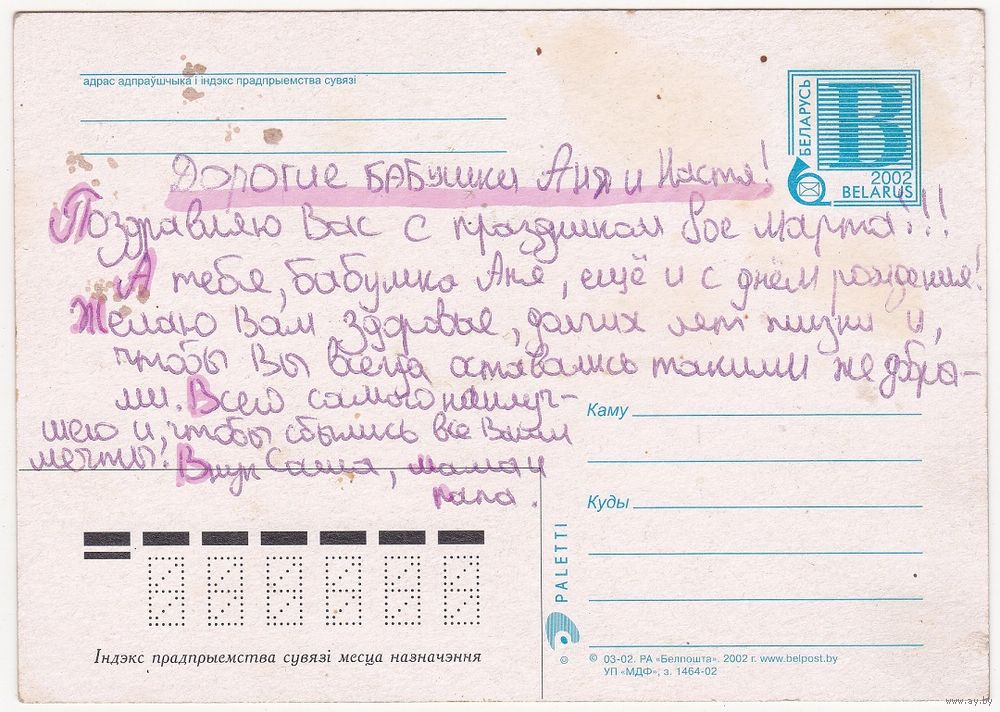 адрас адпраўшчыка і індэкс прадпрыемства сувязі
БЕЛАРУСЬ
B
2002
BELARUS
Дорогие бабушки Аня и Настя!
Поздравляю Вас с праздником 8ое марта!!!
А тебя, бабушка Аня, ещё и с днём рождения!
Желаю Вам здоровье, долгих лет жизни и,
чтобы Вы всегда оставались такими же добры-
ми. Всего самого наилуч-
шего и, чтобы сбылись все Ваши
мечты! Внук Саша, мама и
папа.
Каму
Куды
PALETTI
Індэкс прадпрыемства сувязі месца назначэння
© © 03-02. РА «Белпошта». 2002 г. www.belpost.by
УП «МДФ», з. 1464-02
www.ay.by